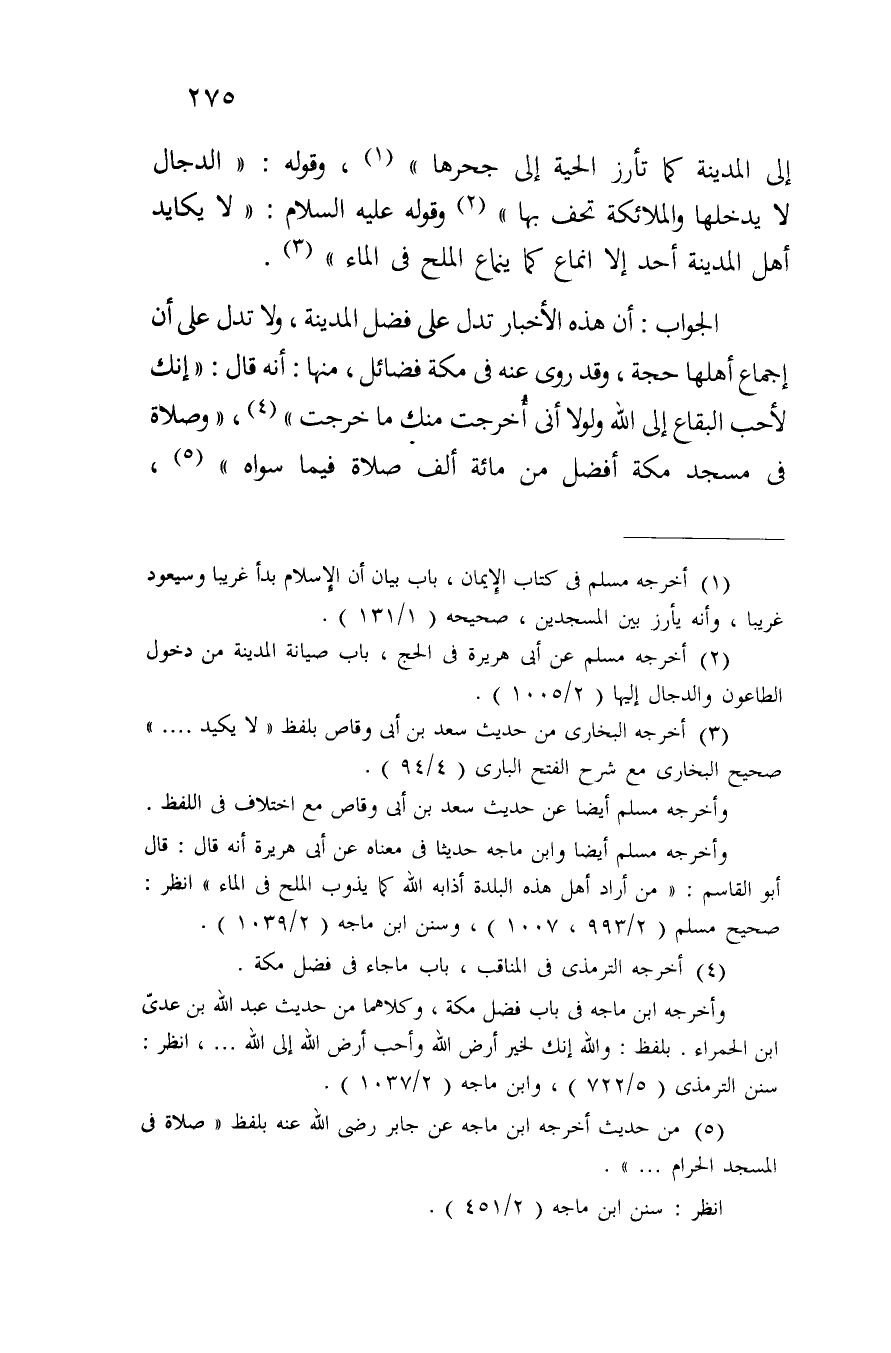 ٢٧٥
إلى المدينة كما تأرز الحية إلى جحرها » (١) ، وقوله : « الدجال
لا يدخلها والملائكة تحف بها » (٢) وقوله عليه السلام : « لا يكايد
أهل المدينة أحد إلا انماع كما ينماع الملح فى الماء » (٣) .
الجواب : أن هذه الأخبار تدل على فضل المدينة ، ولا تدل على أن
إجماع أهلها حجة ، وقد روى عنه فى مكة فضائل ، منها : أنه قال : « إنك
لأحب البقاع إلى الله ولولا أنى أُخرجت منك ما خرجت » (٤) ، « وصلاة
فى مسجد مكة أفضل من مائة ألف صلاة فيما سواه » (٥) ،
(١) أخرجه مسلم فى كتاب الإيمان ، باب بيان أن الإسلام بدأ غريبا وسيعود
غريبا ، وأنه يأرز بين المسجدين ، صحيحه ( ١٣١/١ ) .
(٢) أخرجه مسلم عن أبى هريرة فى الحج ، باب صيانة المدينة من دخول
الطاعون والدجال إليها ( ١٠٠٥/٢ ) .
(٣) أخرجه البخارى من حديث سعد بن أبى وقاص بلفظ « لا يكيد .... »
صحيح البخارى مع شرح الفتح البارى ( ٩٤/٤ ) .
وأخرجه مسلم أيضا عن حديث سعد بن أبى وقاص مع اختلاف فى اللفظ .
وأخرجه مسلم أيضا وابن ماجه حديثا فى معناه عن أبى هريرة أنه قال : قال
أبو القاسم : « من أراد أهل هذه البلدة أذابه الله كما يذوب الملح فى الماء » انظر :
صحيح مسلم ( ٩٩٣/٢ ، ١٠٠٧ ) ، وسنن ابن ماجه ( ١٠٣٩/٢ ) .
(٤) أخرجه الترمذى فى المناقب ، باب ماجاء فى فضل مكة .
وأخرجه ابن ماجه فى باب فضل مكة ، وكلاهما من حديث عبد الله بن عدىّ
ابن الحمراء . بلفظ : والله إنك لخير أرض الله وأحب أرض الله إلى الله ... ، انظر :
سنن الترمذى ( ٧٢٢/٥ ) ، وابن ماجه ( ١٠٣٧/٢ ) .
(٥) من حديث أخرجه ابن ماجه عن جابر رضى الله عنه بلفظ « صلاة فى
المسجد الحرام ... » .
انظر : سنن ابن ماجه ( ٤٥١/٢ ) .